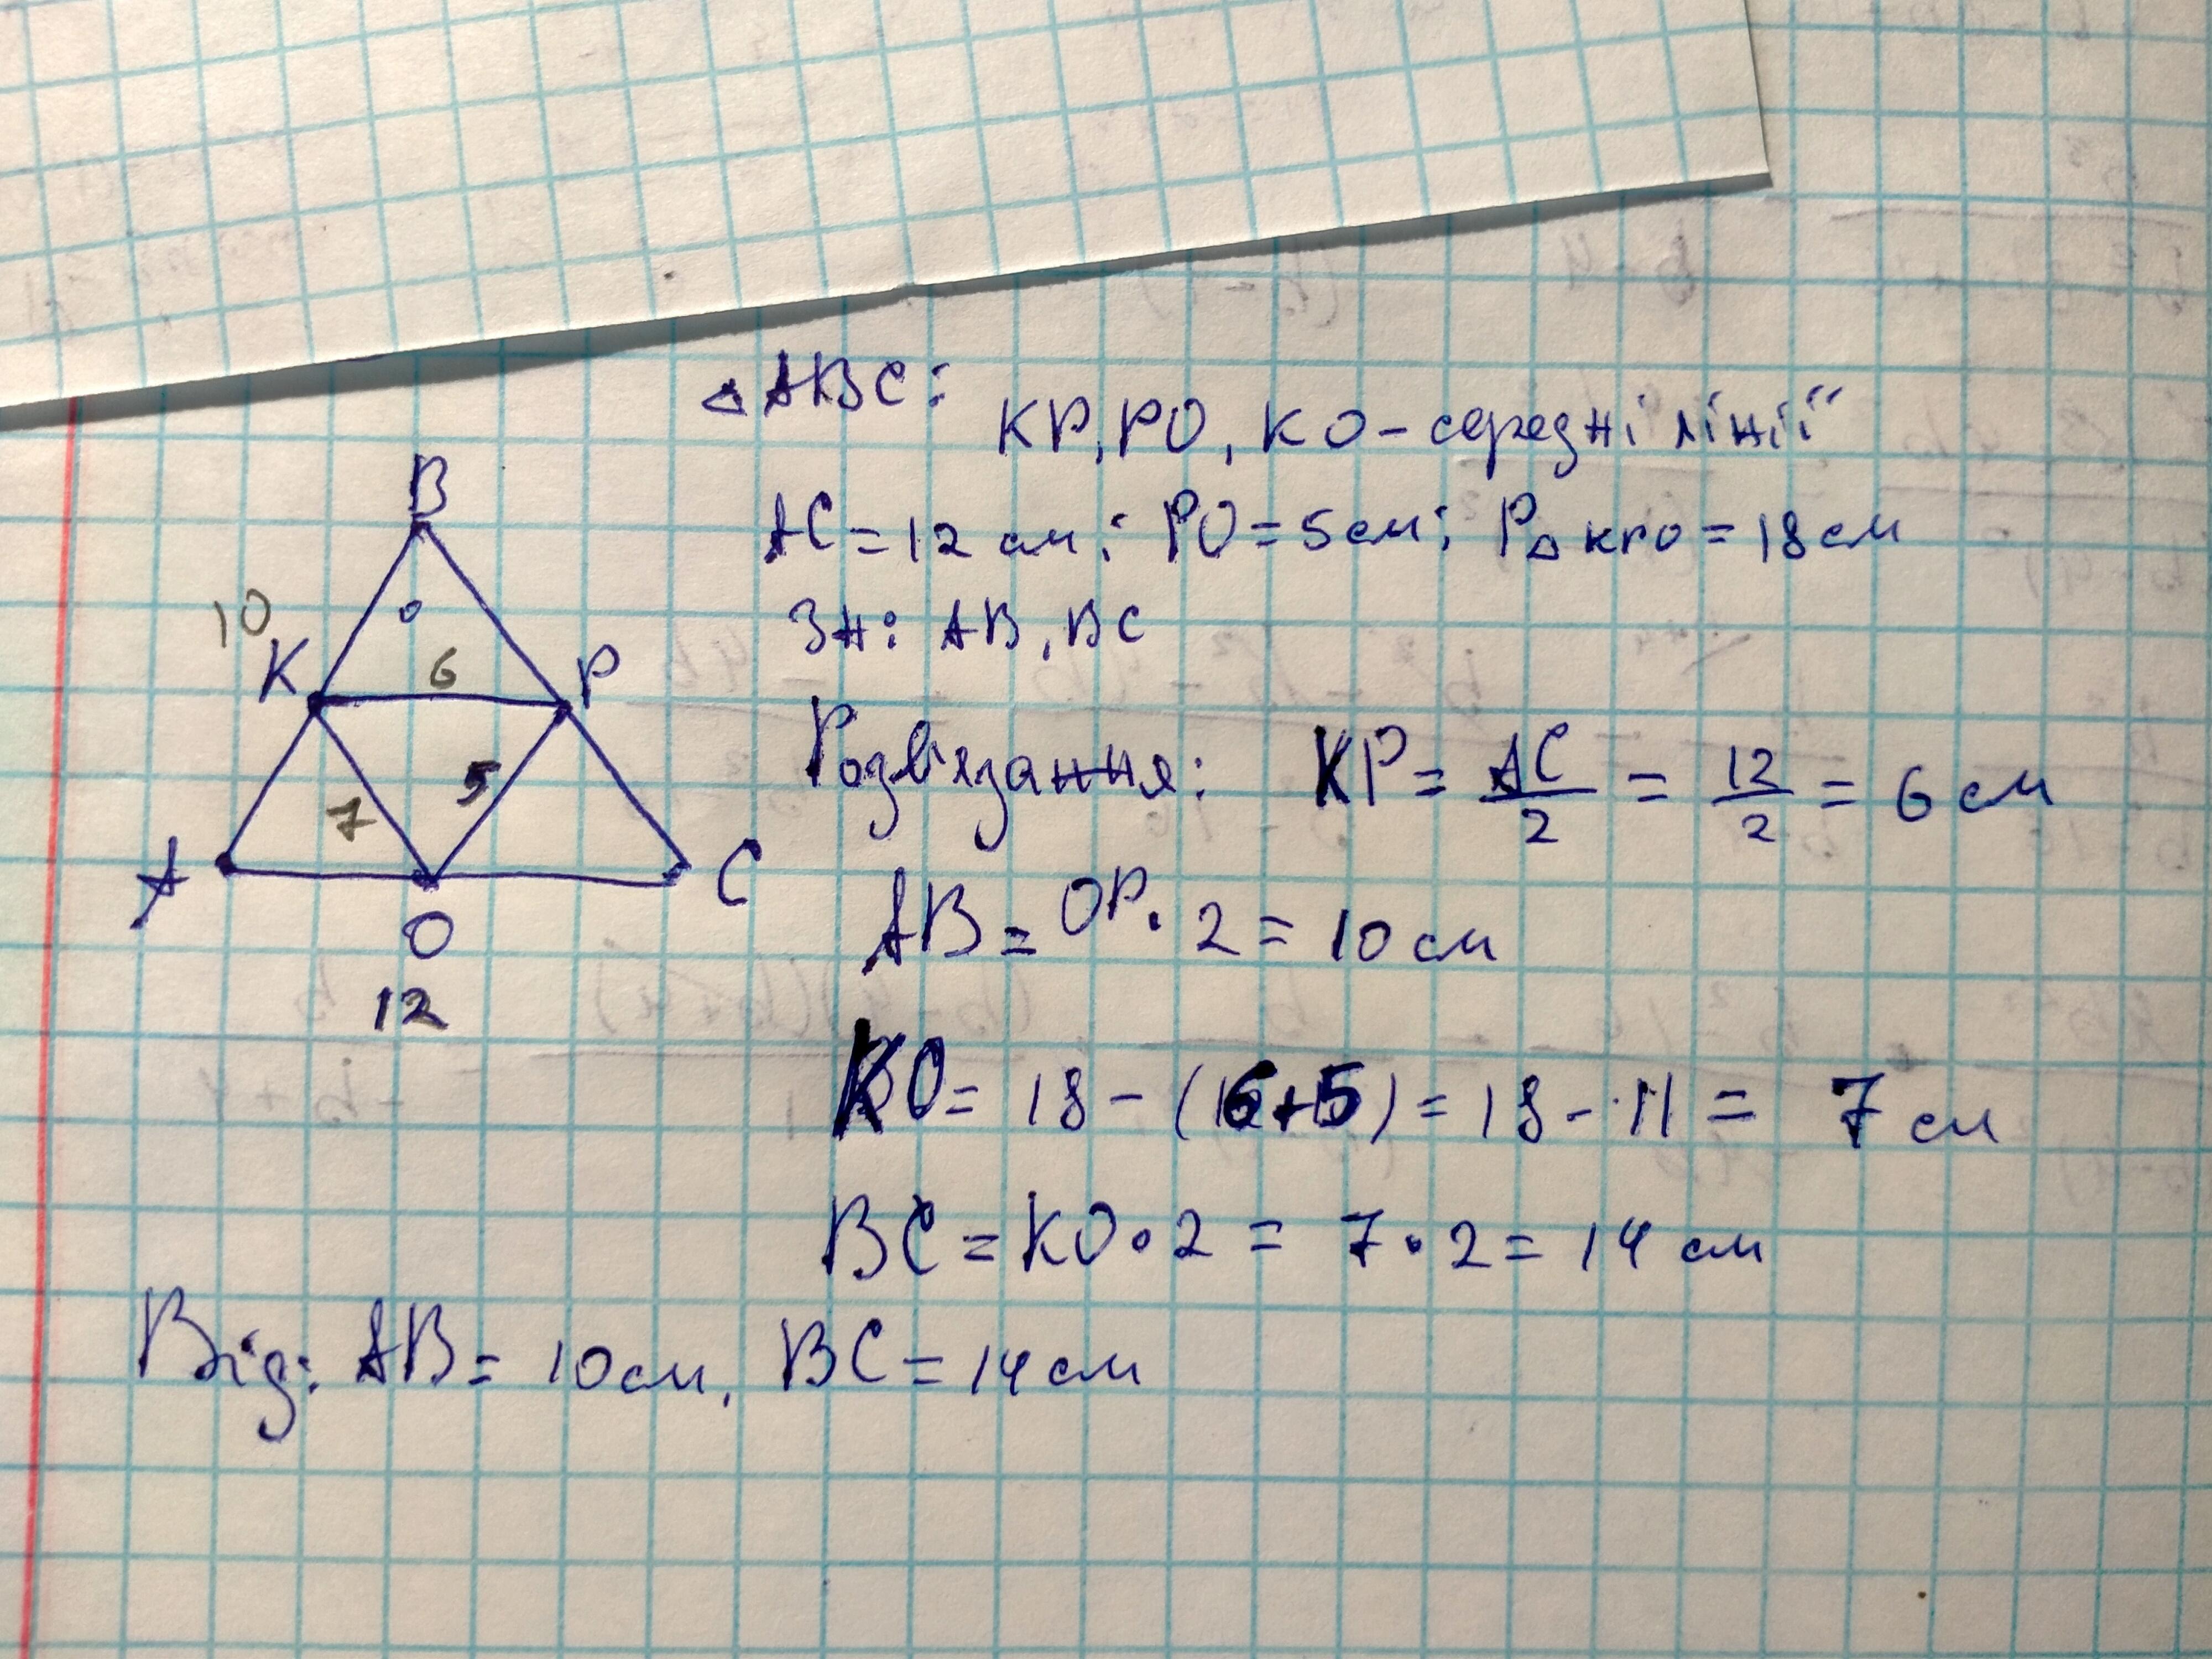 △ABC:
KP, PO, KO - середні лінії
AC = 12 см; PO = 5 см; P△KPO = 18 см
Зн: AB, BC
B
10
K 6 P
7 5
A C
O
12
Розвязання: KP = AC/2 = 12/2 = 6 см
AB = OP · 2 = 10 см
KO = 18 - (6+5) = 18 - 11 = 7 см
BC = KO · 2 = 7 · 2 = 14 см
Від: AB = 10 см, BC = 14 см